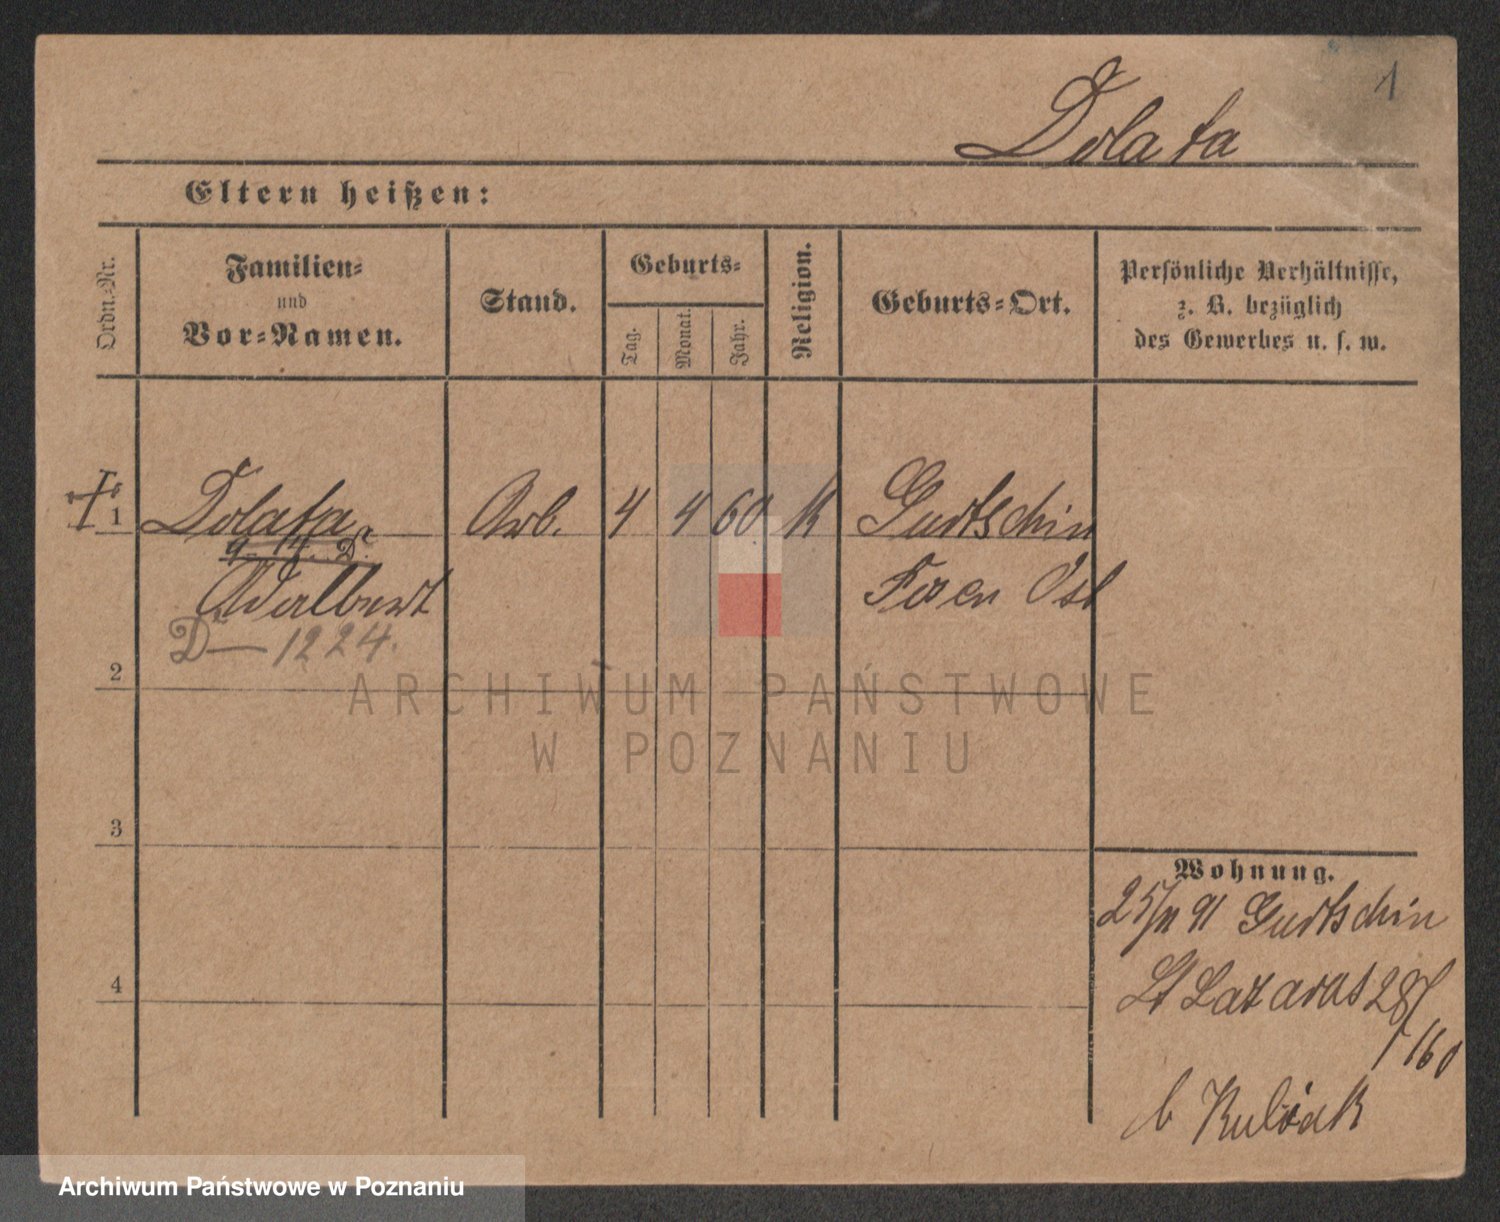 1
Dolata
Eltern heißen:
Ordn.-Nr.
Familien-
und
Vor-Namen.
Stand.
Geburts-
Tag.
Monat.
Jahr.
Religion.
Geburts-Ort.
Persönliche Verhältnisse,
z. B. bezüglich
des Gewerbes u. s. w.
1 Dolata Arb. 4 4 60 K Gurtschin
Adalbert Posen Ost
D — 1224.
2
3
4
Wohnung.
25/11 91 Gurtschin
St Lazarus 28/
160
b Kubiak
ARCHIWUM PAŃSTWOWE
W POZNANIU
Archiwum Państwowe w Poznaniu